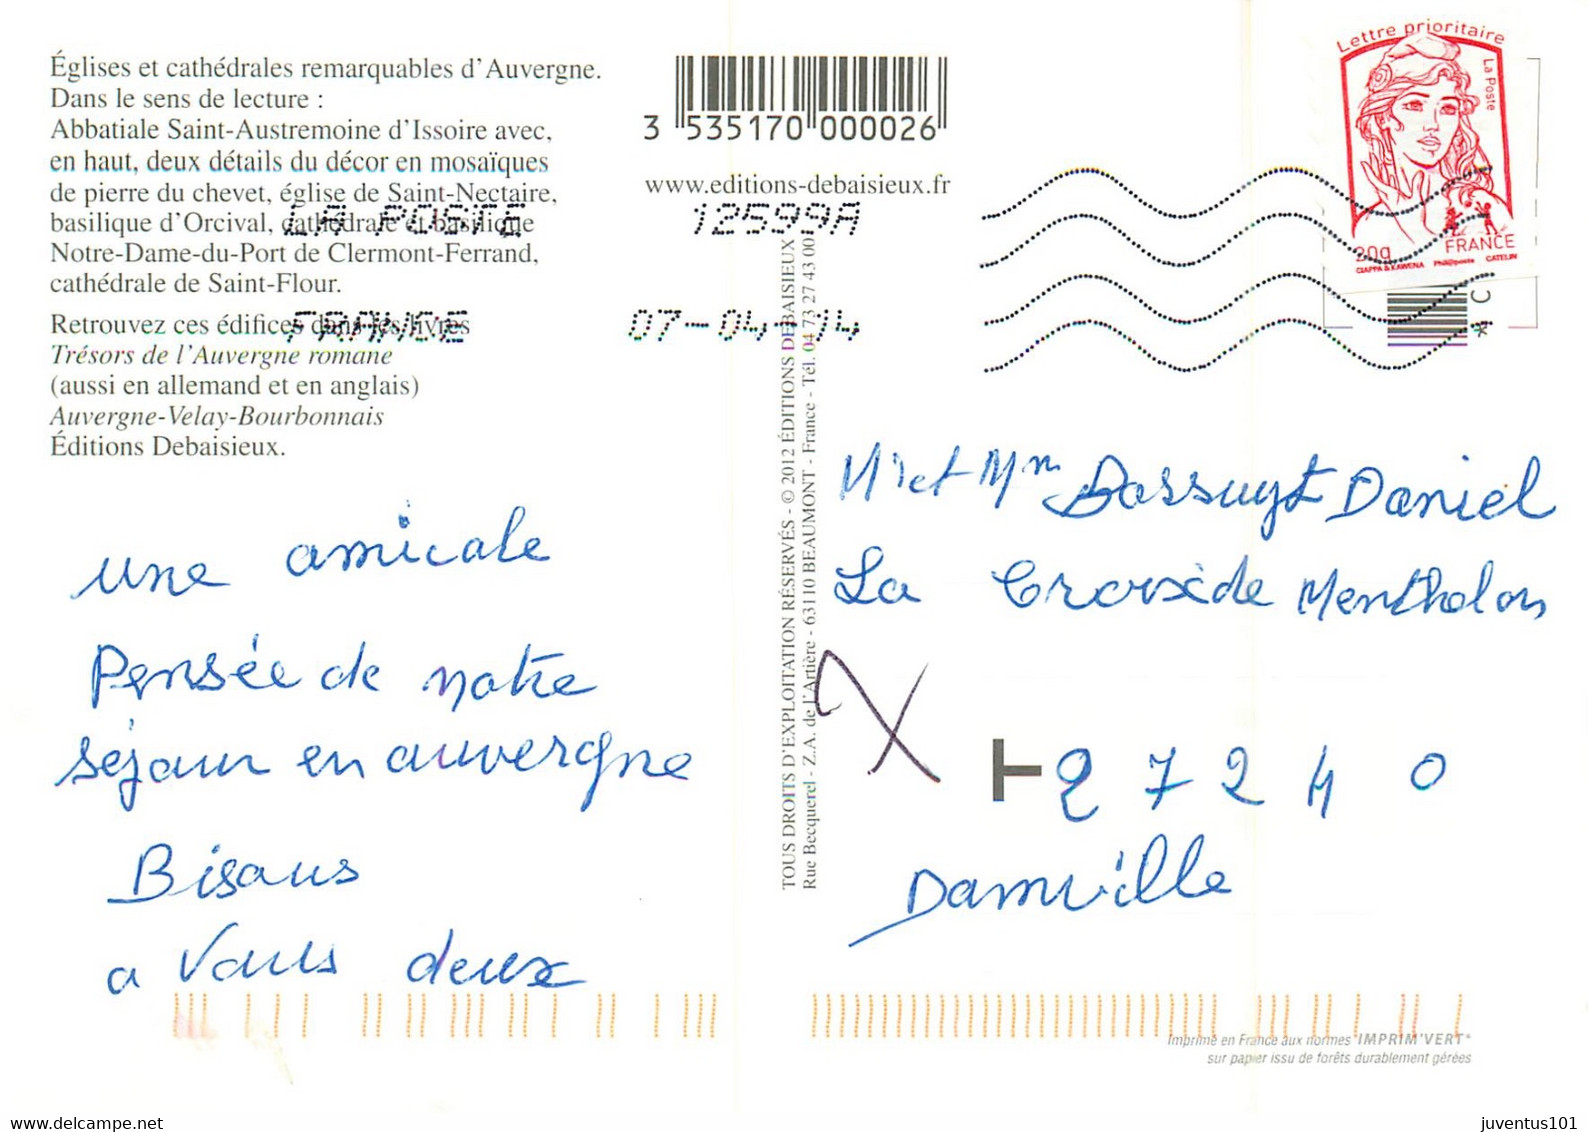 Églises et cathédrales remarquables d'Auvergne.
Dans le sens de lecture :
Abbatiale Saint-Austremoine d'Issoire avec,
en haut, deux détails du décor en mosaïques
de pierre du chevet, église de Saint-Nectaire,
basilique d'Orcival, cathédrale et basilique
Notre-Dame-du-Port de Clermont-Ferrand,
cathédrale de Saint-Flour.
Retrouvez ces édifices dans les livres
Trésors de l'Auvergne romane
(aussi en allemand et en anglais)
Auvergne-Velay-Bourbonnais
Éditions Debaisieux.
3 535170 000026
www.editions-debaisieux.fr
LA POSTE 12599A
FRANCE 07-04-14
Lettre prioritaire
La Poste
20g FRANCE
CIAPPA & KAWENA Phil@poste CATELIN
* C
TOUS DROITS D'EXPLOITATION RÉSERVÉS - © 2012 ÉDITIONS DEBAISIEUX
Rue Becquerel - Z.A. de l'Artière - 63110 BEAUMONT - France - Tél. 04 73 27 43 00
une amicale
Pensée de notre
séjour en auvergne
Bisous
a Vous deux
Mr et Mm Dassuyt Daniel
La Croix de Mentholon
27240
Damville
Imprimé en France aux normes IMPRIM'VERT®
sur papier issu de forêts durablement gérées
juventus101